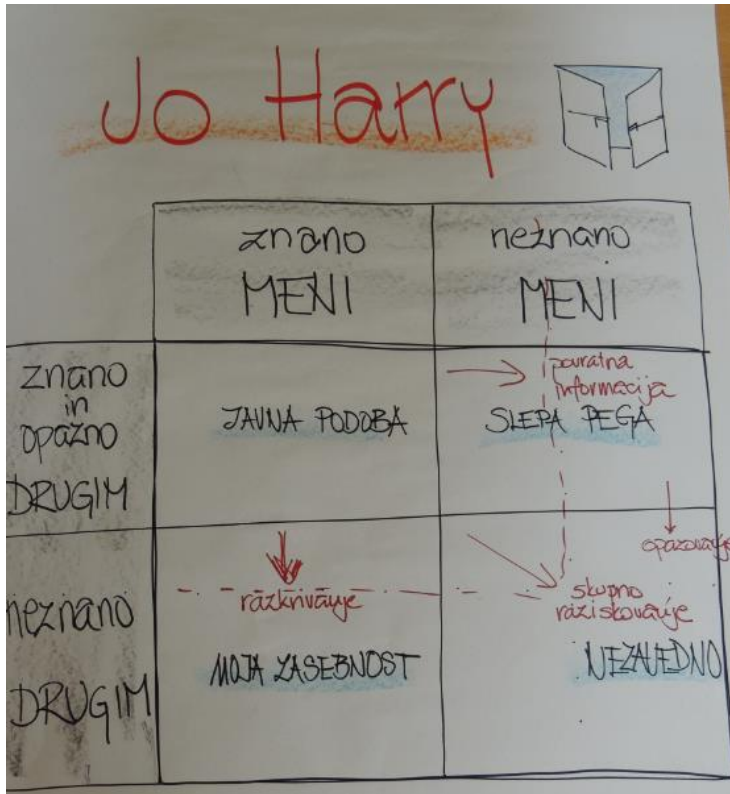 Jo Harry
znano
MENI
neznano
MENI
znano
in
opazno
DRUGIM
JAVNA PODOBA
povratna
informacija
SLEPA PEGA
opazovanje
neznano
DRUGIM
razkrivanje
MOJA ZASEBNOST
skupno
raziskovanje
NEZAVEDNO